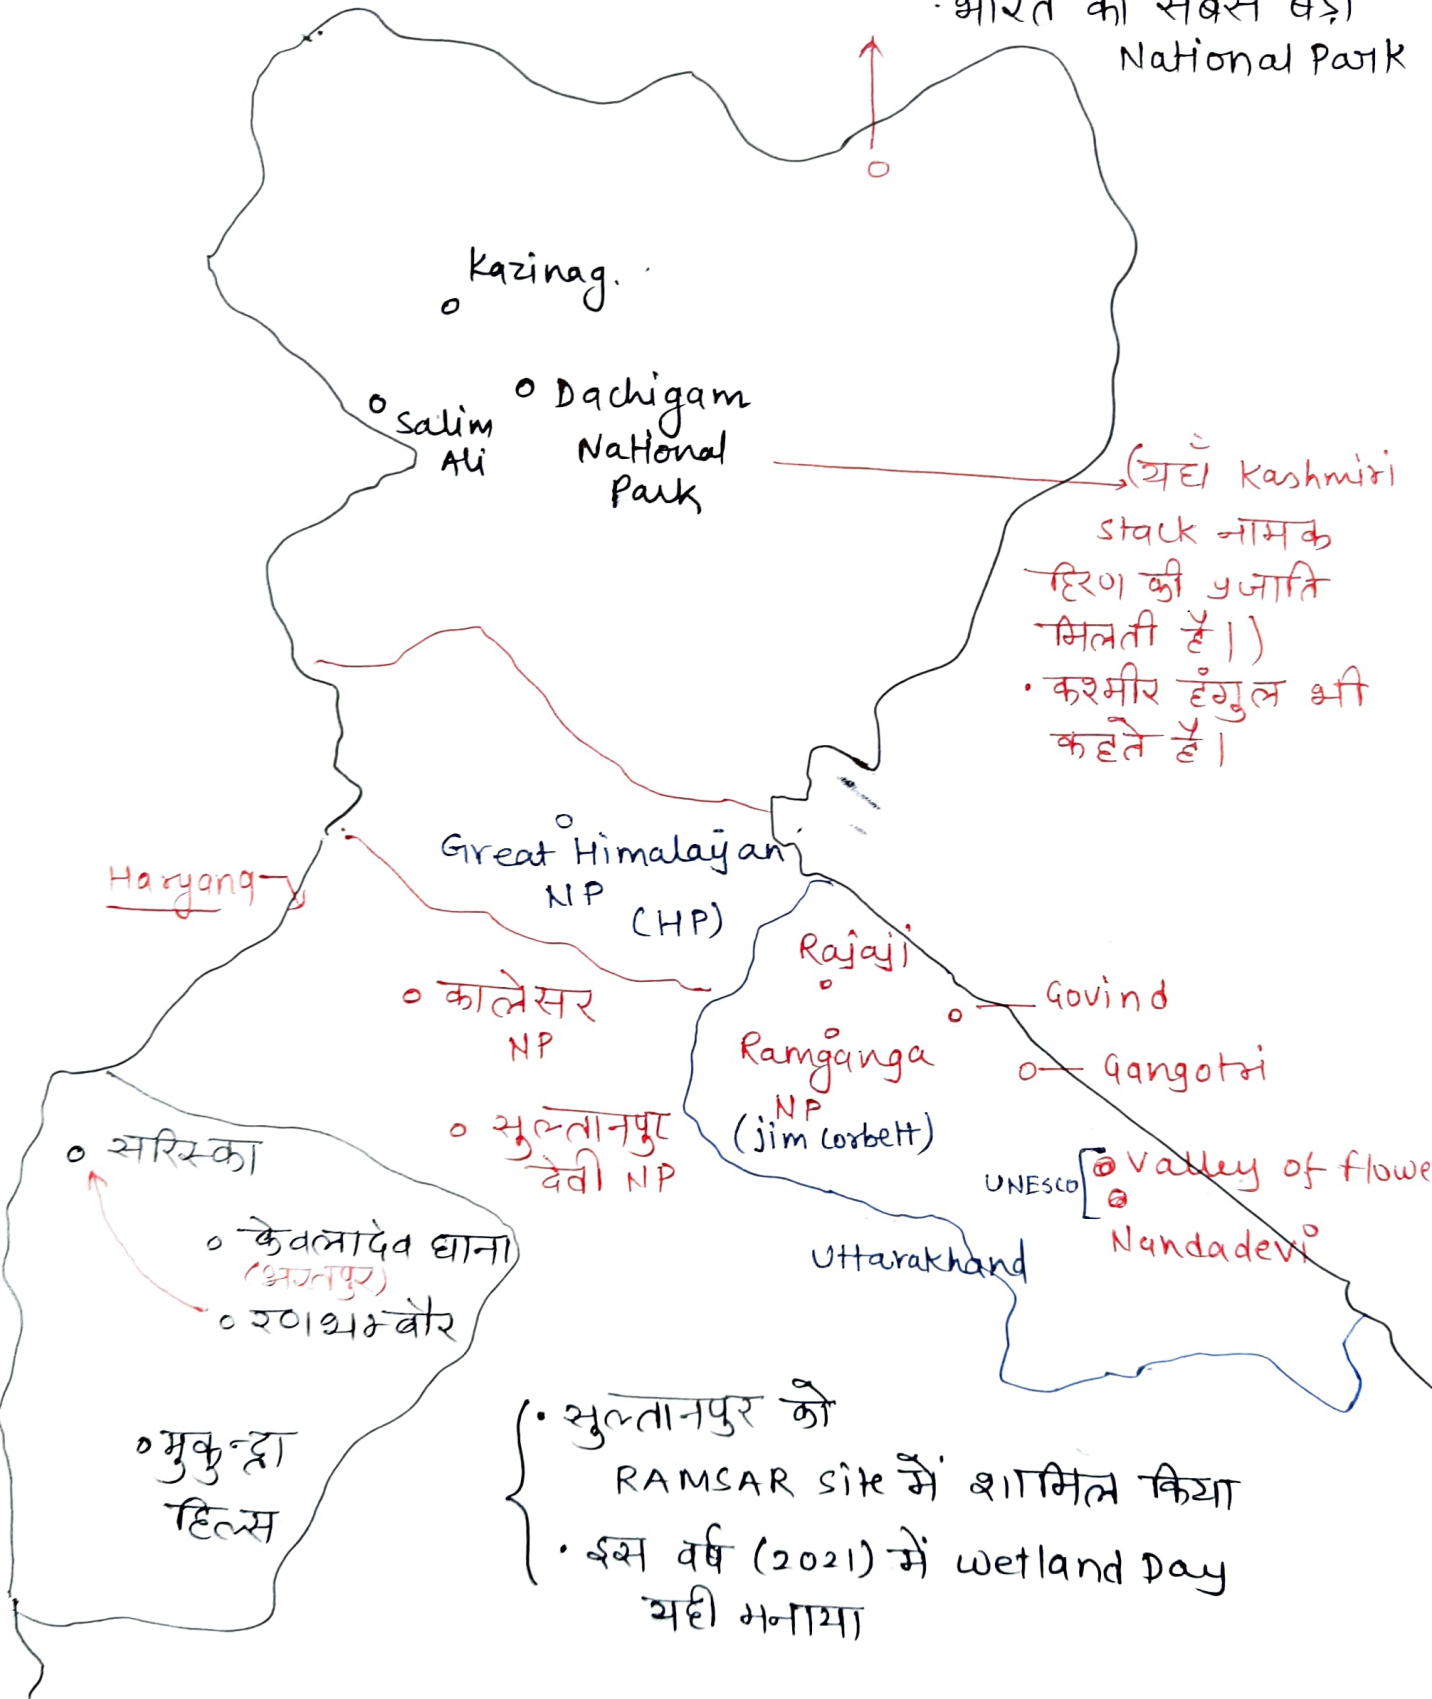 · भारत का सबसे बड़ा
National Park
Kazinag.
Dachigam
National
Park
Salim
Ali
(यहाँ Kashmiri
stack नामक
हिरण की प्रजाति
मिलती है।)
· कश्मीर हंगुल भी
कहते है।
Great Himalayan
NP
(HP)
Haryana
Rajaji
कालेसर
NP
Govind
Ramganga
NP
(jim corbett)
Gangotri
सुल्तानपुर
देवी NP
सरिस्का
UNESCO
Valley of flowe
Nandadevi
केवलादेव घाना
(भरतपुर)
Uttarakhand
रणथम्बौर
· सुल्तानपुर को
RAMSAR site में शामिल किया
मुकुन्द्रा
हिल्स
· इस वर्ष (2021) में wetland Day
यही मनाया